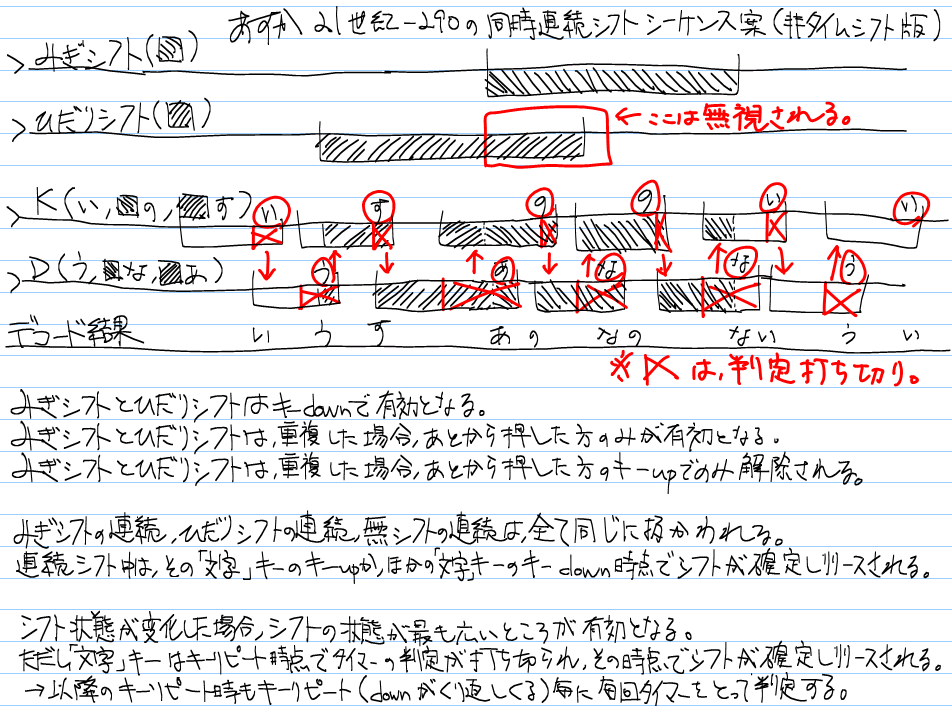 あすか21世紀-290の同時連続シフトシーケンス案(非タイムシフト版)
>みぎシフト( )
>ひだりシフト( )
←ここは無視される。
>K(い, の, す)
い す の の い い
>D(う, な, あ)
う あ な な う
デコード結果 い う す あ の な の な い う い
※ は,判定打ち切り。
みぎシフトとひだりシフトはキーdownで有効となる。
みぎシフトとひだりシフトは,重複した場合,あとから押した方のみが有効となる。
みぎシフトとひだりシフトは,重複した場合,あとから押した方のキーupでのみ解除される。
みぎシフトの連続,ひだりシフトの連続,無シフトの連続は,全て同じに扱かわれる。
連続シフト中は,その「文字」キーのキーupか,ほかの「文字」キーのキーdown時点でシフトが確定しリリースされる。
シフト状態が変化した場合,シフトの状態が最も広いところが有効となる。
ただし「文字」キーはキーリピート時点でタイマーの判定が打ち切られ,その時点でシフトが確定しリリースされる。
→以降のキーリピート時もキーリピート(downがくり返しくる)毎に毎回タイマーをとって判定する。